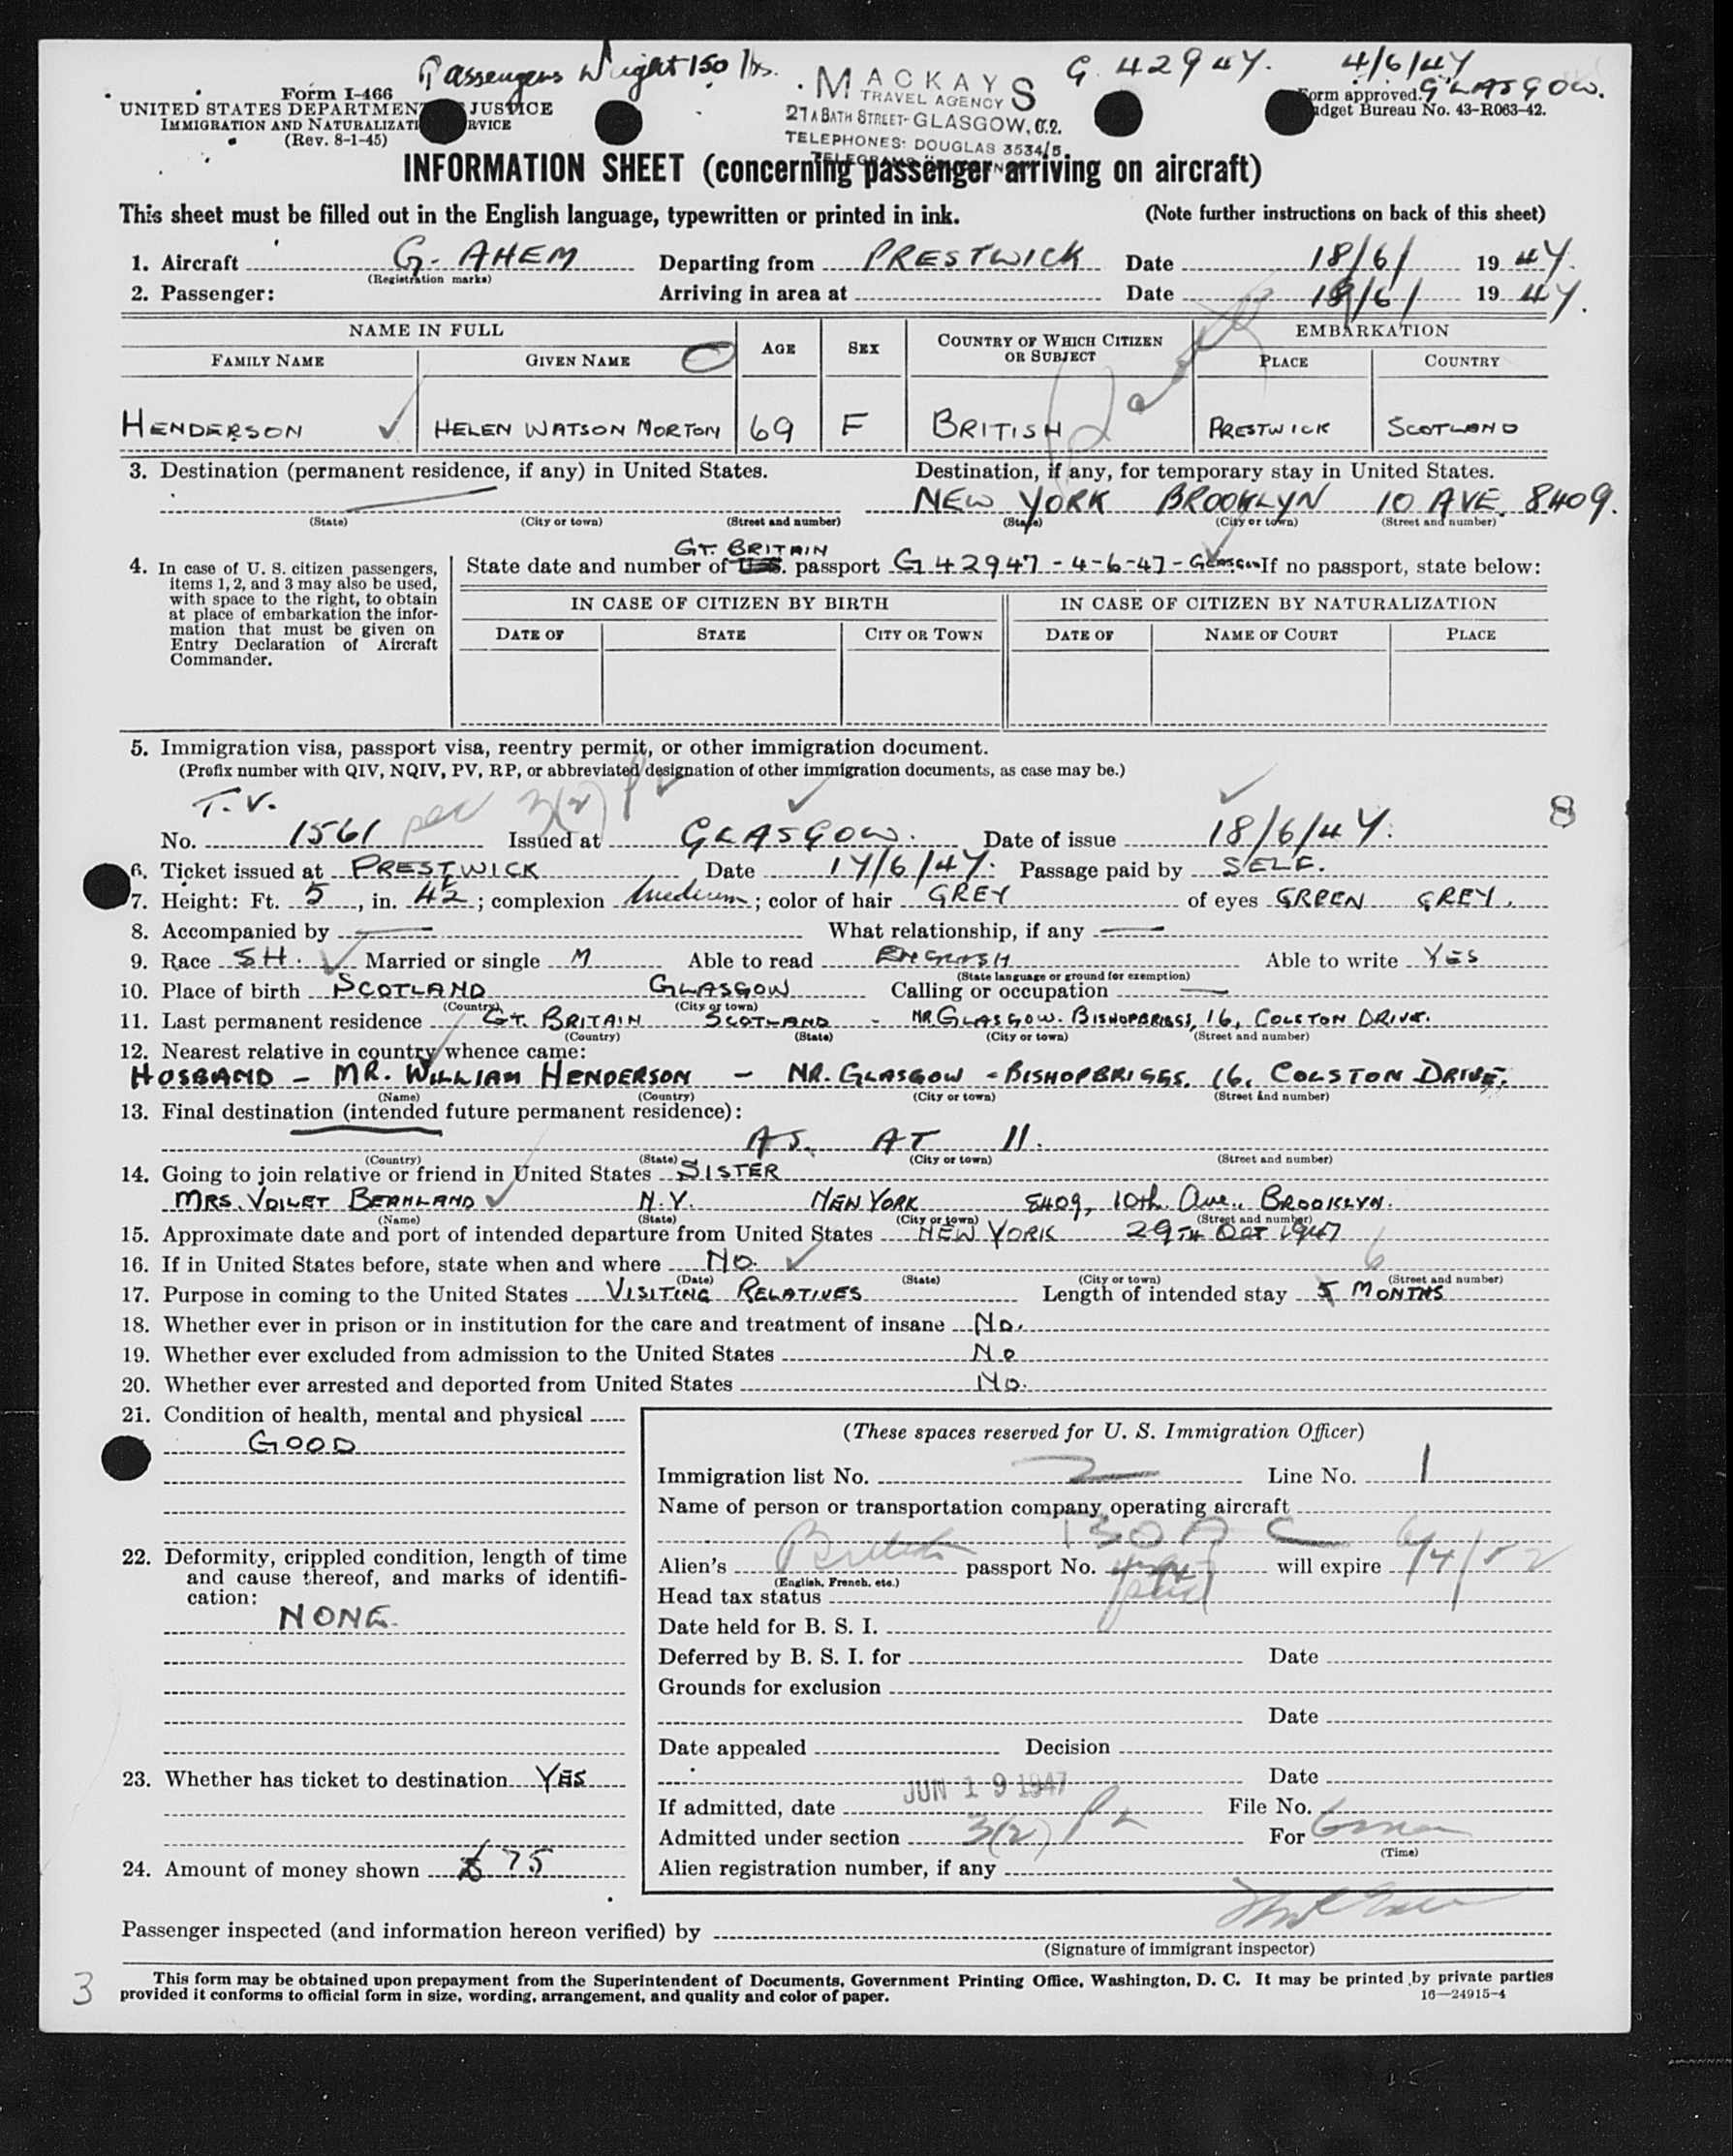 Passengers Weight 150 lbs.
G 42947. 4/6/47
GLASGOW.
MACKAYS
TRAVEL AGENCY
27A BATH STREET - GLASGOW, C.2.
TELEPHONES: DOUGLAS 3534/5
Form I-466
UNITED STATES DEPARTMENT JUSTICE
IMMIGRATION AND NATURALIZATI RVICE
(Rev. 8-1-45)
orm approved.
udget Bureau No. 43-R063-42.
INFORMATION SHEET (concerning passenger arriving on aircraft)
This sheet must be filled out in the English language, typewritten or printed in ink. (Note further instructions on back of this sheet)
1. Aircraft G-AHEM Departing from PRESTWICK Date 18/6/ 1947.
(Registration marks)
2. Passenger: Arriving in area at Date 18/6/ 1947.
NAME IN FULL AGE SEX COUNTRY OF WHICH CITIZEN OR SUBJECT EMBARKATION
FAMILY NAME GIVEN NAME PLACE COUNTRY
HENDERSON HELEN WATSON MORTON 69 F BRITISH PRESTWICK SCOTLAND
3. Destination (permanent residence, if any) in United States. Destination, if any, for temporary stay in United States.
NEW YORK BROOKLYN 10 AVE. 8409.
(State) (City or town) (Street and number) (State) (City or town) (Street and number)
4. In case of U. S. citizen passengers, items 1, 2, and 3 may also be used, with space to the right, to obtain at place of embarkation the information that must be given on Entry Declaration of Aircraft Commander.
GT. BRITAIN
State date and number of U.S. passport G 42947 - 4-6-47 - GLASGOW If no passport, state below:
IN CASE OF CITIZEN BY BIRTH IN CASE OF CITIZEN BY NATURALIZATION
DATE OF STATE CITY OR TOWN DATE OF NAME OF COURT PLACE
5. Immigration visa, passport visa, reentry permit, or other immigration document.
(Prefix number with QIV, NQIV, PV, RP, or abbreviated designation of other immigration documents, as case may be.)
T.V. 3(2) 8
No. 1561 Issued at GLASGOW. Date of issue 18/6/47.
6. Ticket issued at PRESTWICK Date 17/6/47. Passage paid by SELF.
7. Height: Ft. 5, in. 4½; complexion Medium; color of hair GREY of eyes GREEN GREY.
8. Accompanied by — What relationship, if any —
9. Race SH. Married or single M Able to read ENGLISH Able to write YES
(State language or ground for exemption)
10. Place of birth SCOTLAND GLASGOW Calling or occupation —
(Country) (City or town)
11. Last permanent residence GT. BRITAIN SCOTLAND - NR. GLASGOW. BISHOPBRIGGS, 16, COLSTON DRIVE.
(Country) (State) (City or town) (Street and number)
12. Nearest relative in country whence came:
HUSBAND - MR. WILLIAM HENDERSON - NR. GLASGOW - BISHOPBRIGGS. 16, COLSTON DRIVE.
(Name) (Country) (City or town) (Street and number)
13. Final destination (intended future permanent residence):
AS AT 11.
(Country) (State) (City or town) (Street and number)
14. Going to join relative or friend in United States SISTER
MRS. VOILET BEANLAND N.Y. NEW YORK 8409, 10th Ave., BROOKLYN.
(Name) (State) (City or town) (Street and number)
15. Approximate date and port of intended departure from United States NEW YORK 29TH OCT 1947
16. If in United States before, state when and where NO.
(Date) (State) (City or town) (Street and number)
6
17. Purpose in coming to the United States VISITING RELATIVES Length of intended stay 5 MONTHS
18. Whether ever in prison or in institution for the care and treatment of insane NO.
19. Whether ever excluded from admission to the United States NO
20. Whether ever arrested and deported from United States NO.
21. Condition of health, mental and physical
GOOD
22. Deformity, crippled condition, length of time and cause thereof, and marks of identification:
NONE.
23. Whether has ticket to destination YES
24. Amount of money shown £75
(These spaces reserved for U. S. Immigration Officer)
Immigration list No. 2 Line No. 1
Name of person or transportation company operating aircraft
BOAC
Alien's British passport No. will expire 6/4/52
(English, French, etc.)
Head tax status
Date held for B. S. I.
Deferred by B. S. I. for Date
Grounds for exclusion
Date
Date appealed Decision
Date
If admitted, date JUN 19 1947 File No.
Admitted under section 3(2) For 6 mos
(Time)
Alien registration number, if any
Passenger inspected (and information hereon verified) by
(Signature of immigrant inspector)
3
This form may be obtained upon prepayment from the Superintendent of Documents, Government Printing Office, Washington, D. C. It may be printed by private parties
provided it conforms to official form in size, wording, arrangement, and quality and color of paper. 16—24915-4